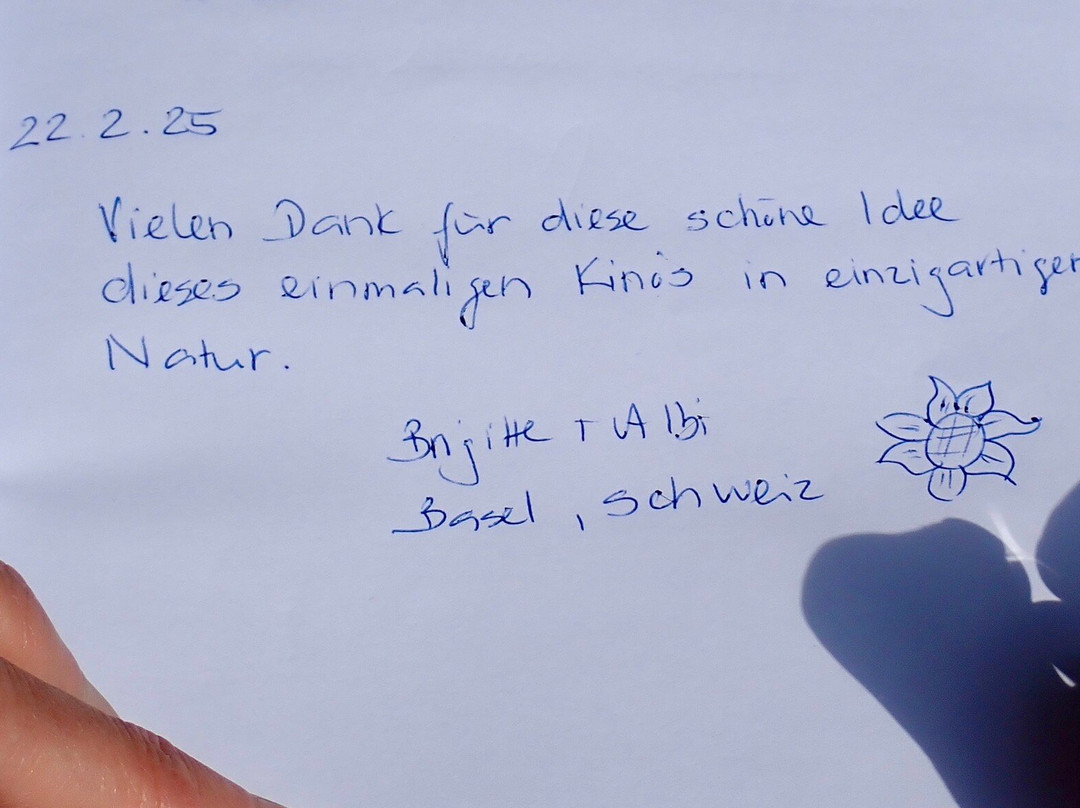 22.2.25
Vielen Dank für diese schöne Idee
dieses einmaligen Kino's in einzigartiger
Natur.
Brigitte + Albi
Basel, Schweiz